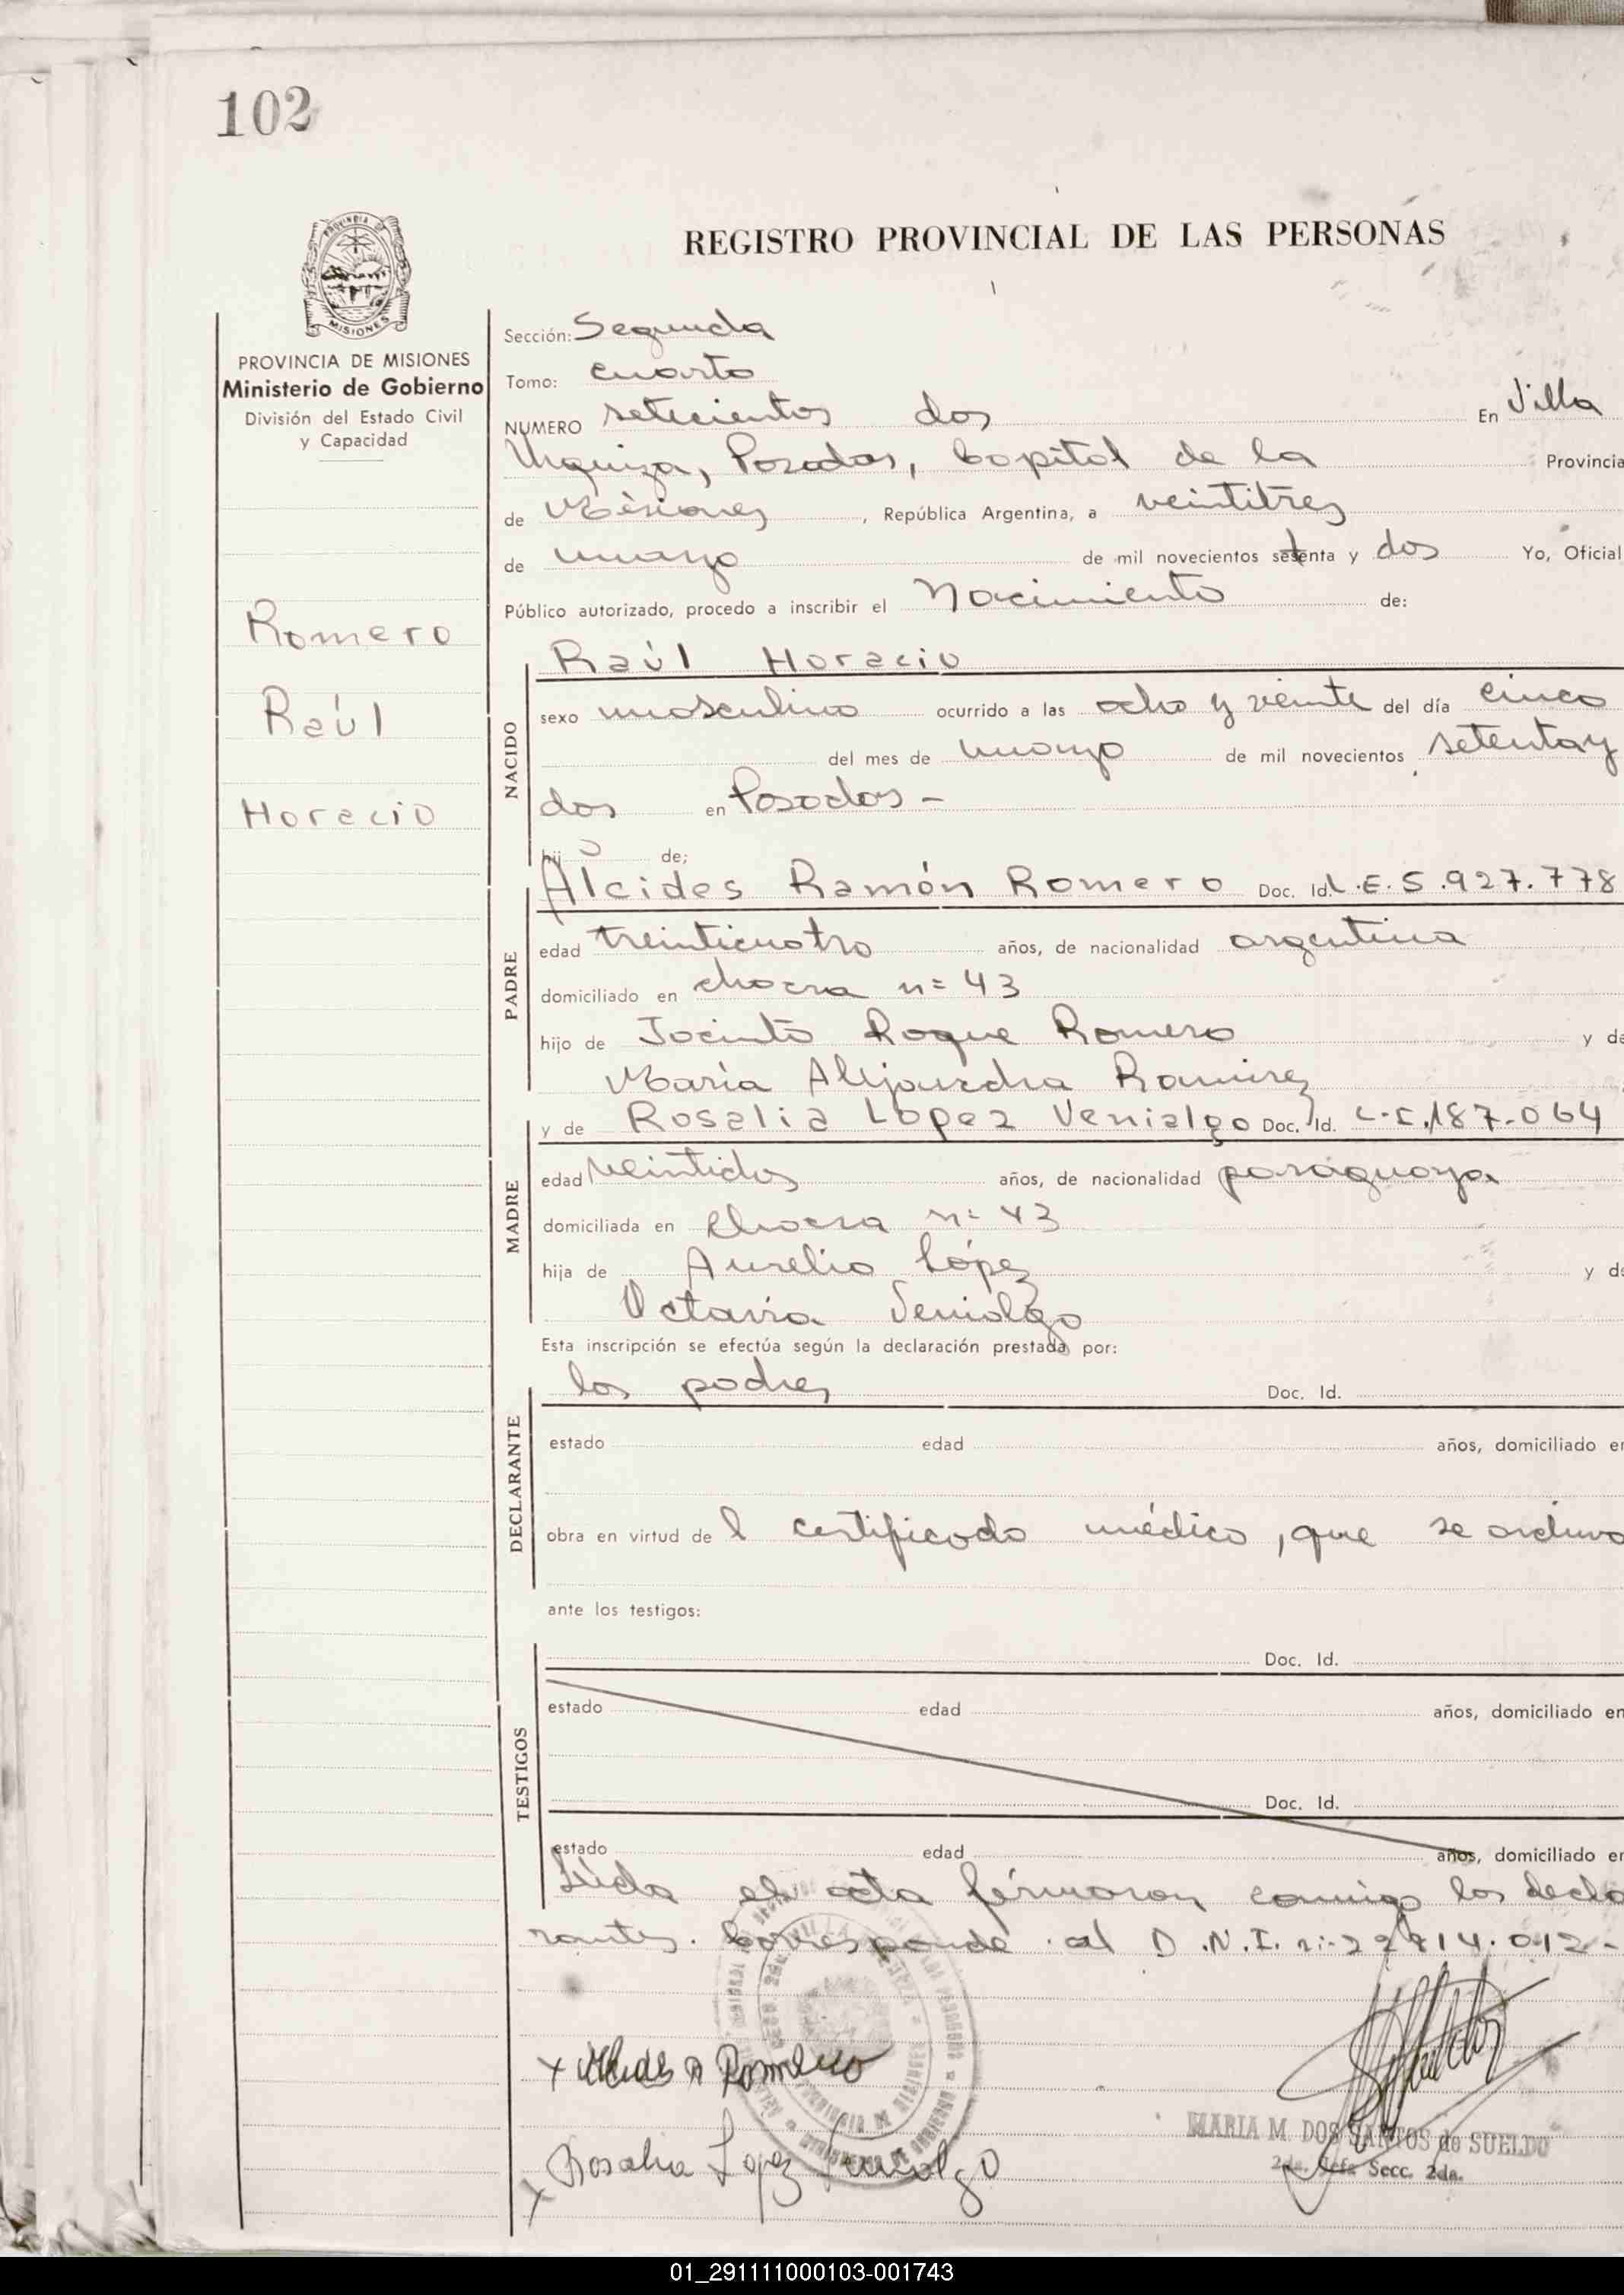 102
REGISTRO PROVINCIAL DE LAS PERSONAS
PROVINCIA DE
MISIONES
PROVINCIA DE MISIONES
Ministerio de Gobierno
División del Estado Civil
y Capacidad
Romero
Raúl
Horacio
Sección: Segunda
Tomo: cuarto
NUMERO setecientos dos En Villa
Urquiza, Posadas, Capital de la Provincia
de Misiones, República Argentina, a veintitres
de marzo de mil novecientos setenta y dos Yo, Oficial
Público autorizado, procedo a inscribir el Nacimiento de:
NACIDO
Raúl Horacio
sexo masculino ocurrido a las ocho y veinte del día cinco
del mes de marzo de mil novecientos setenta y
dos en Posadas -
hijo de;
PADRE
Alcides Ramón Romero Doc. Id. L.E. 5.927.778
edad treinticuatro años, de nacionalidad argentina
domiciliado en chacra n= 43
hijo de Jacinto Roque Romero y de
María Alejandra Ramirez
MADRE
y de Rosalia Lopez Venialgo Doc. Id. 187.064
edad veintidos años, de nacionalidad paraguaya
domiciliada en chacra n= 43
hija de Aurelio López y de
Octavia Venialgo
Esta inscripción se efectúa según la declaración prestada por:
DECLARANTE
los padres Doc. Id.
estado edad años, domiciliado en
obra en virtud del certificado médico, que se archiva
ante los testigos:
TESTIGOS
Doc. Id.
estado edad años, domiciliado en
Doc. Id.
estado edad años, domiciliado en
Leida el acta firmaron conmigo los decla
rantes. Corresponde al D.N.I. 22.814.012-
x Alcides R Romero
MARIA M. DOS SANTOS de SUELDO
2da. Jefa Secc. 2da.
x Rosalia Lopez Venialgo
01_291111000103-001743